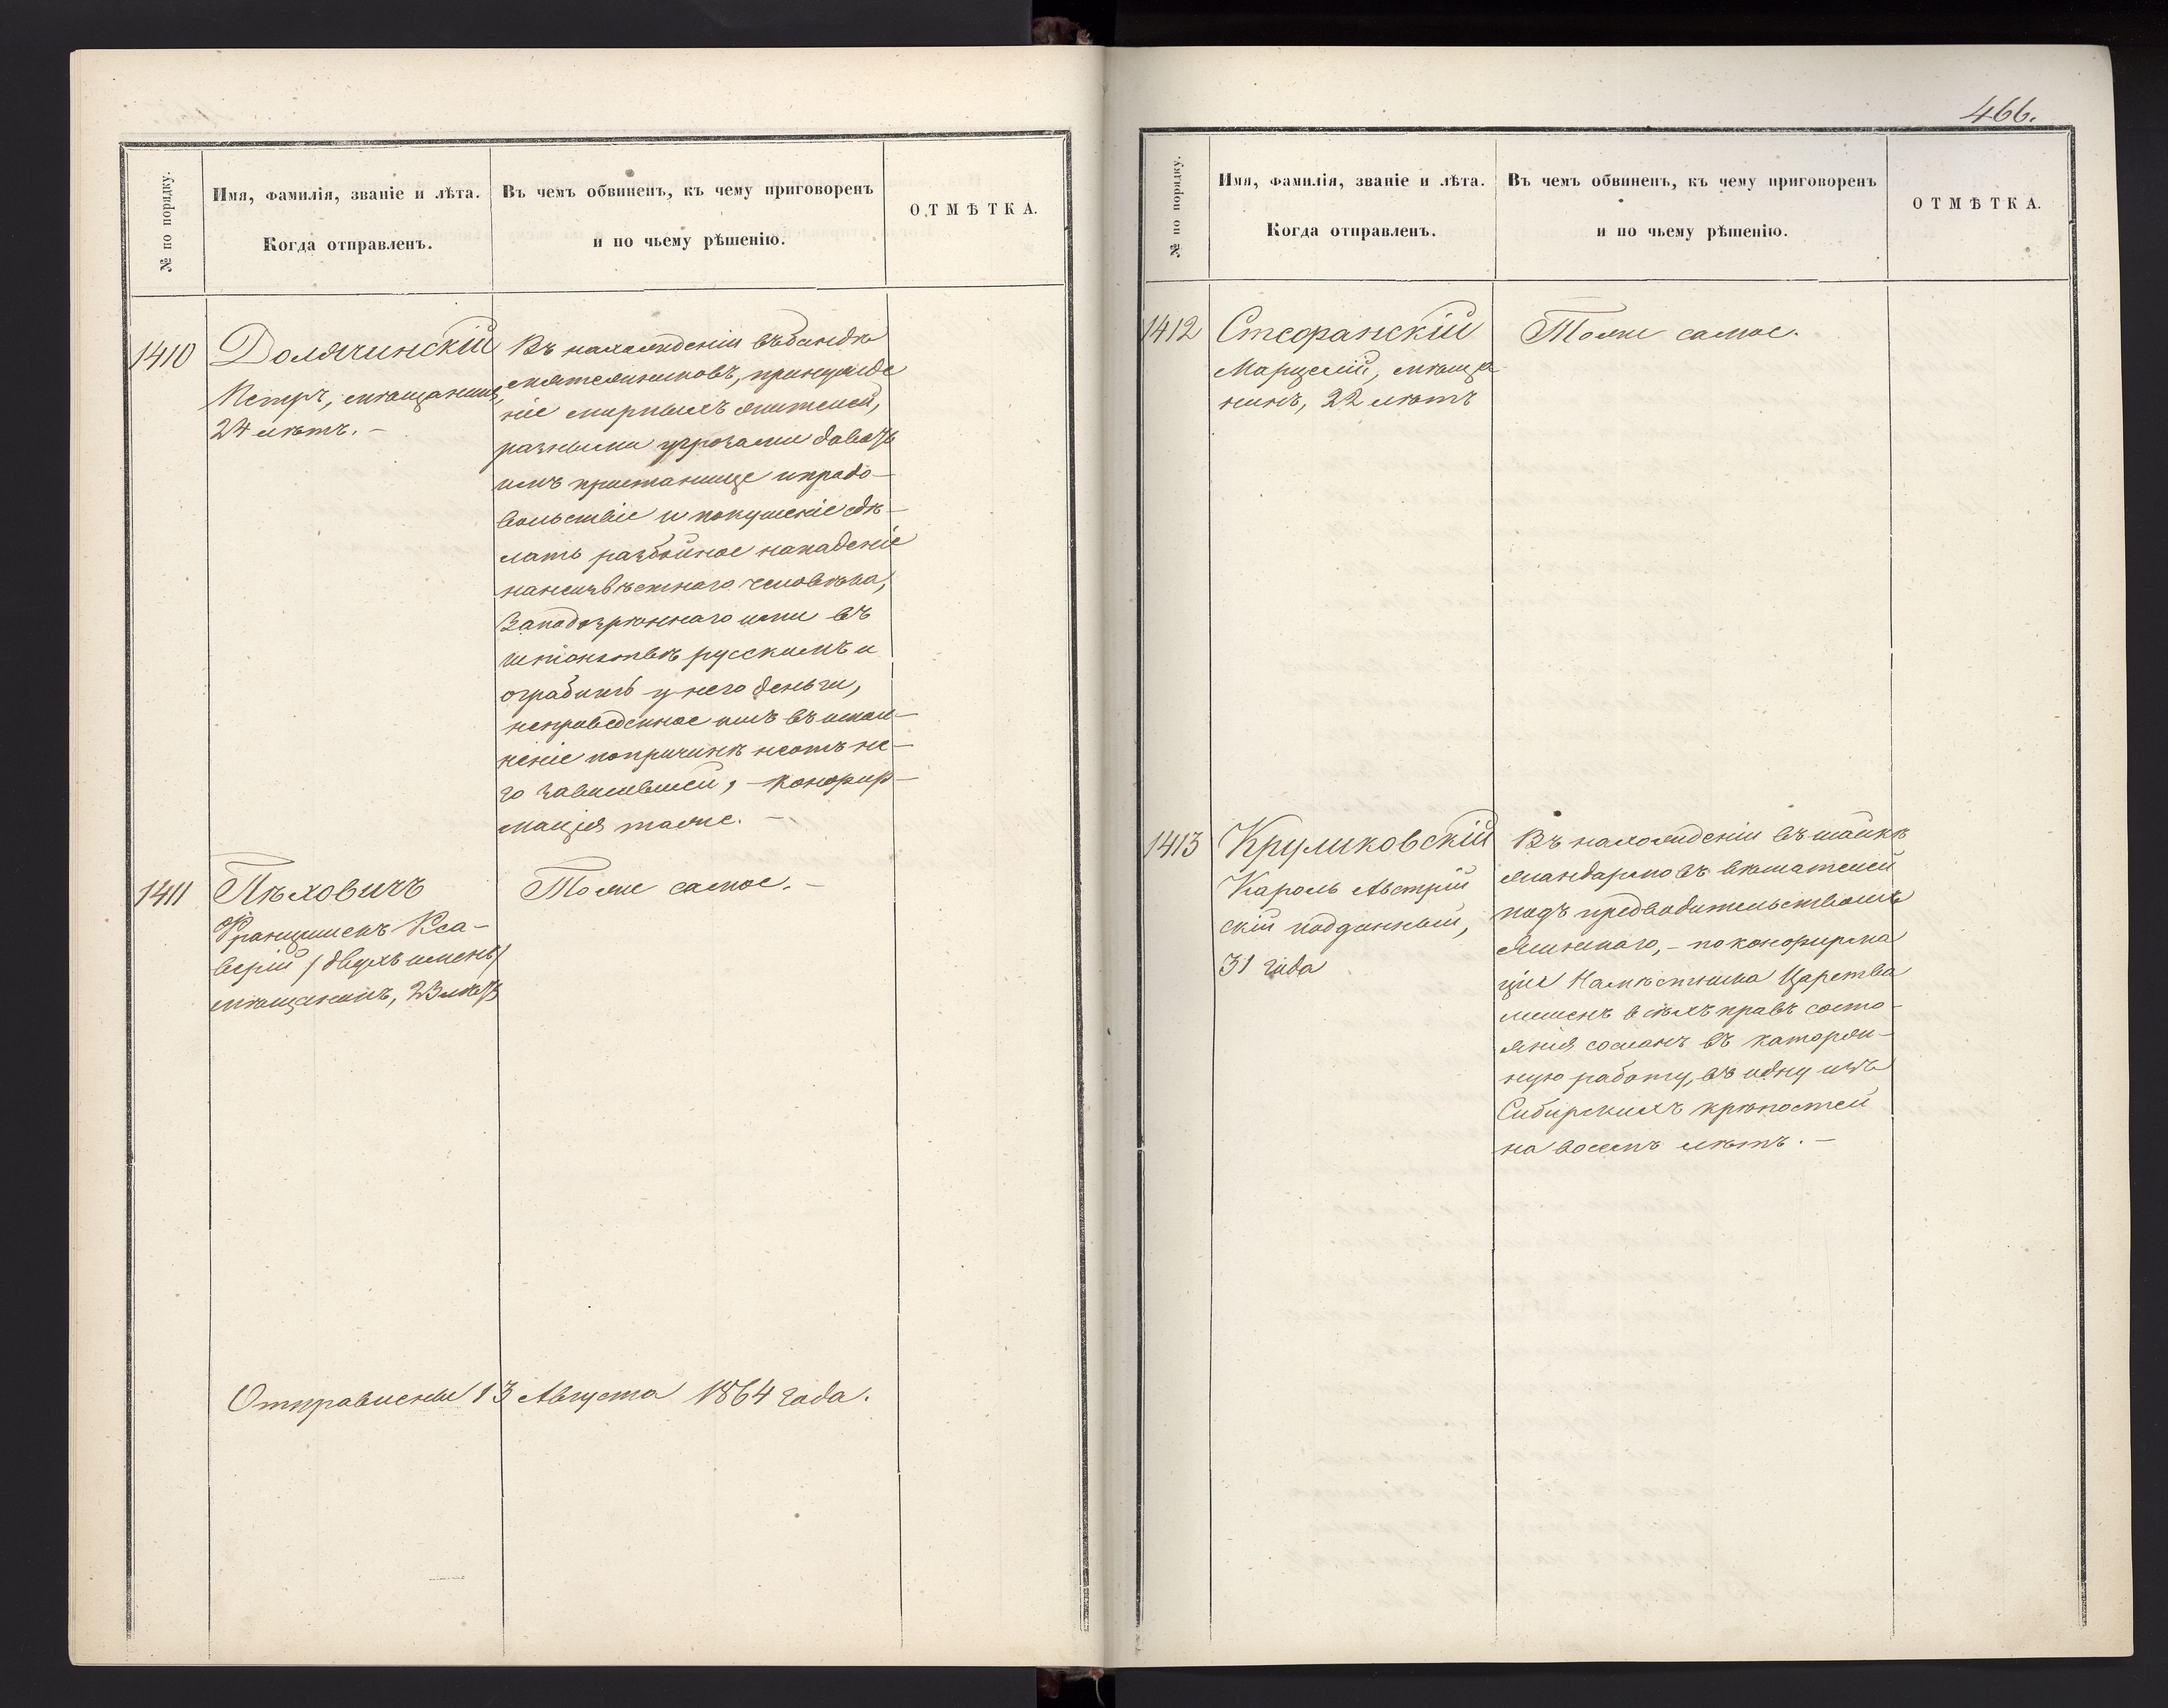 № по порядку.
Имя, фамилія, званіе и лѣта.
Когда отправленъ.
Въ чемъ обвиненъ, къ чему приговоренъ
и по чьему рѣшенію.
ОТМѢТКА.
1410
Долячинскій
Петръ, мѣщанинъ,
24 лѣтъ. –
Въ нахожденіи въ бандѣ
мятежниковъ, принужде
ніе мирныхъ жителей,
разными угрозами давать
имъ пристанище и продо-
вольствіе и покушеніе сдѣ-
лать разбойное нападеніе
на неизвѣстнаго человѣка,
Заподозрѣннаго ими въ
шпіонствѣ русскимъ и
ограбить у него деньги,
неприведенное имъ въ испол-
неніе по причинѣ не отъ не-
го зависѣвшей, – конфир-
мація таже. –
1411
Пѣховичъ
Францишекъ Кса-
верій /двухъ именъ/
мѣщанинъ, 23 лѣтъ
Тоже самое. –
Отправлены 13 Августа 1864 года.
466.
№ по порядку.
Имя, фамилія, званіе и лѣта.
Когда отправленъ.
Въ чемъ обвиненъ, къ чему приговоренъ
и по чьему рѣшенію.
ОТМѢТКА.
1412
Стефанскій
Марцелій, мѣща
нинъ, 22 лѣтъ
Тоже самое.
1413
Круликовскій
Кароль Австрій
скій подданный,
31 года
Въ нахожденіи въ шайкѣ
жандармовъ вѣшателей
подъ предводительствомъ
– по конфирма
ціи Намѣстника Царства
лишенъ всѣхъ правъ состо-
янія сосланъ въ каторж-
ную работу, въ одну изъ
Сибирскихъ крѣпостей
на восемь лѣтъ. –